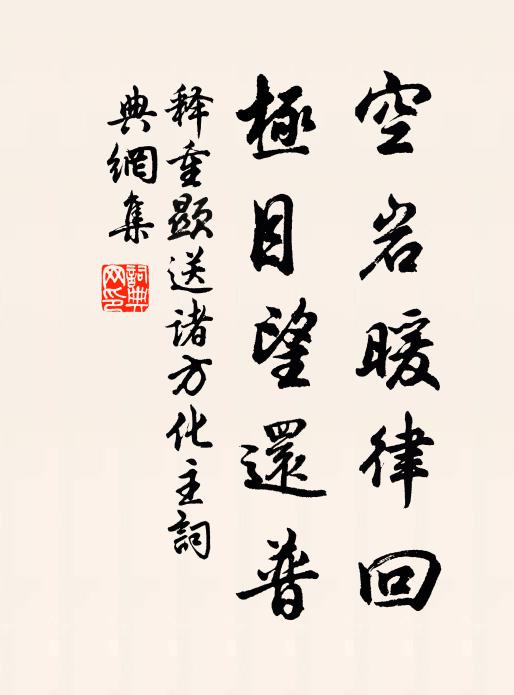 空岩暖律回
極目望還普
释重顯送诸方化主詞
典網集
詞典網印